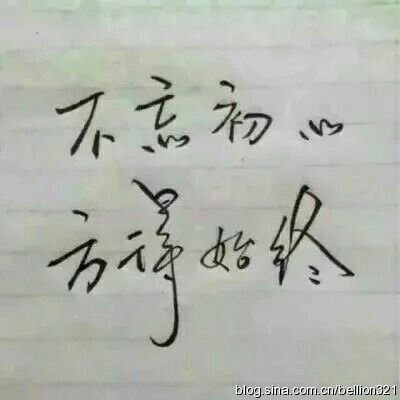 不忘初心
方得始终
blog.sina.com.cn/bellion321